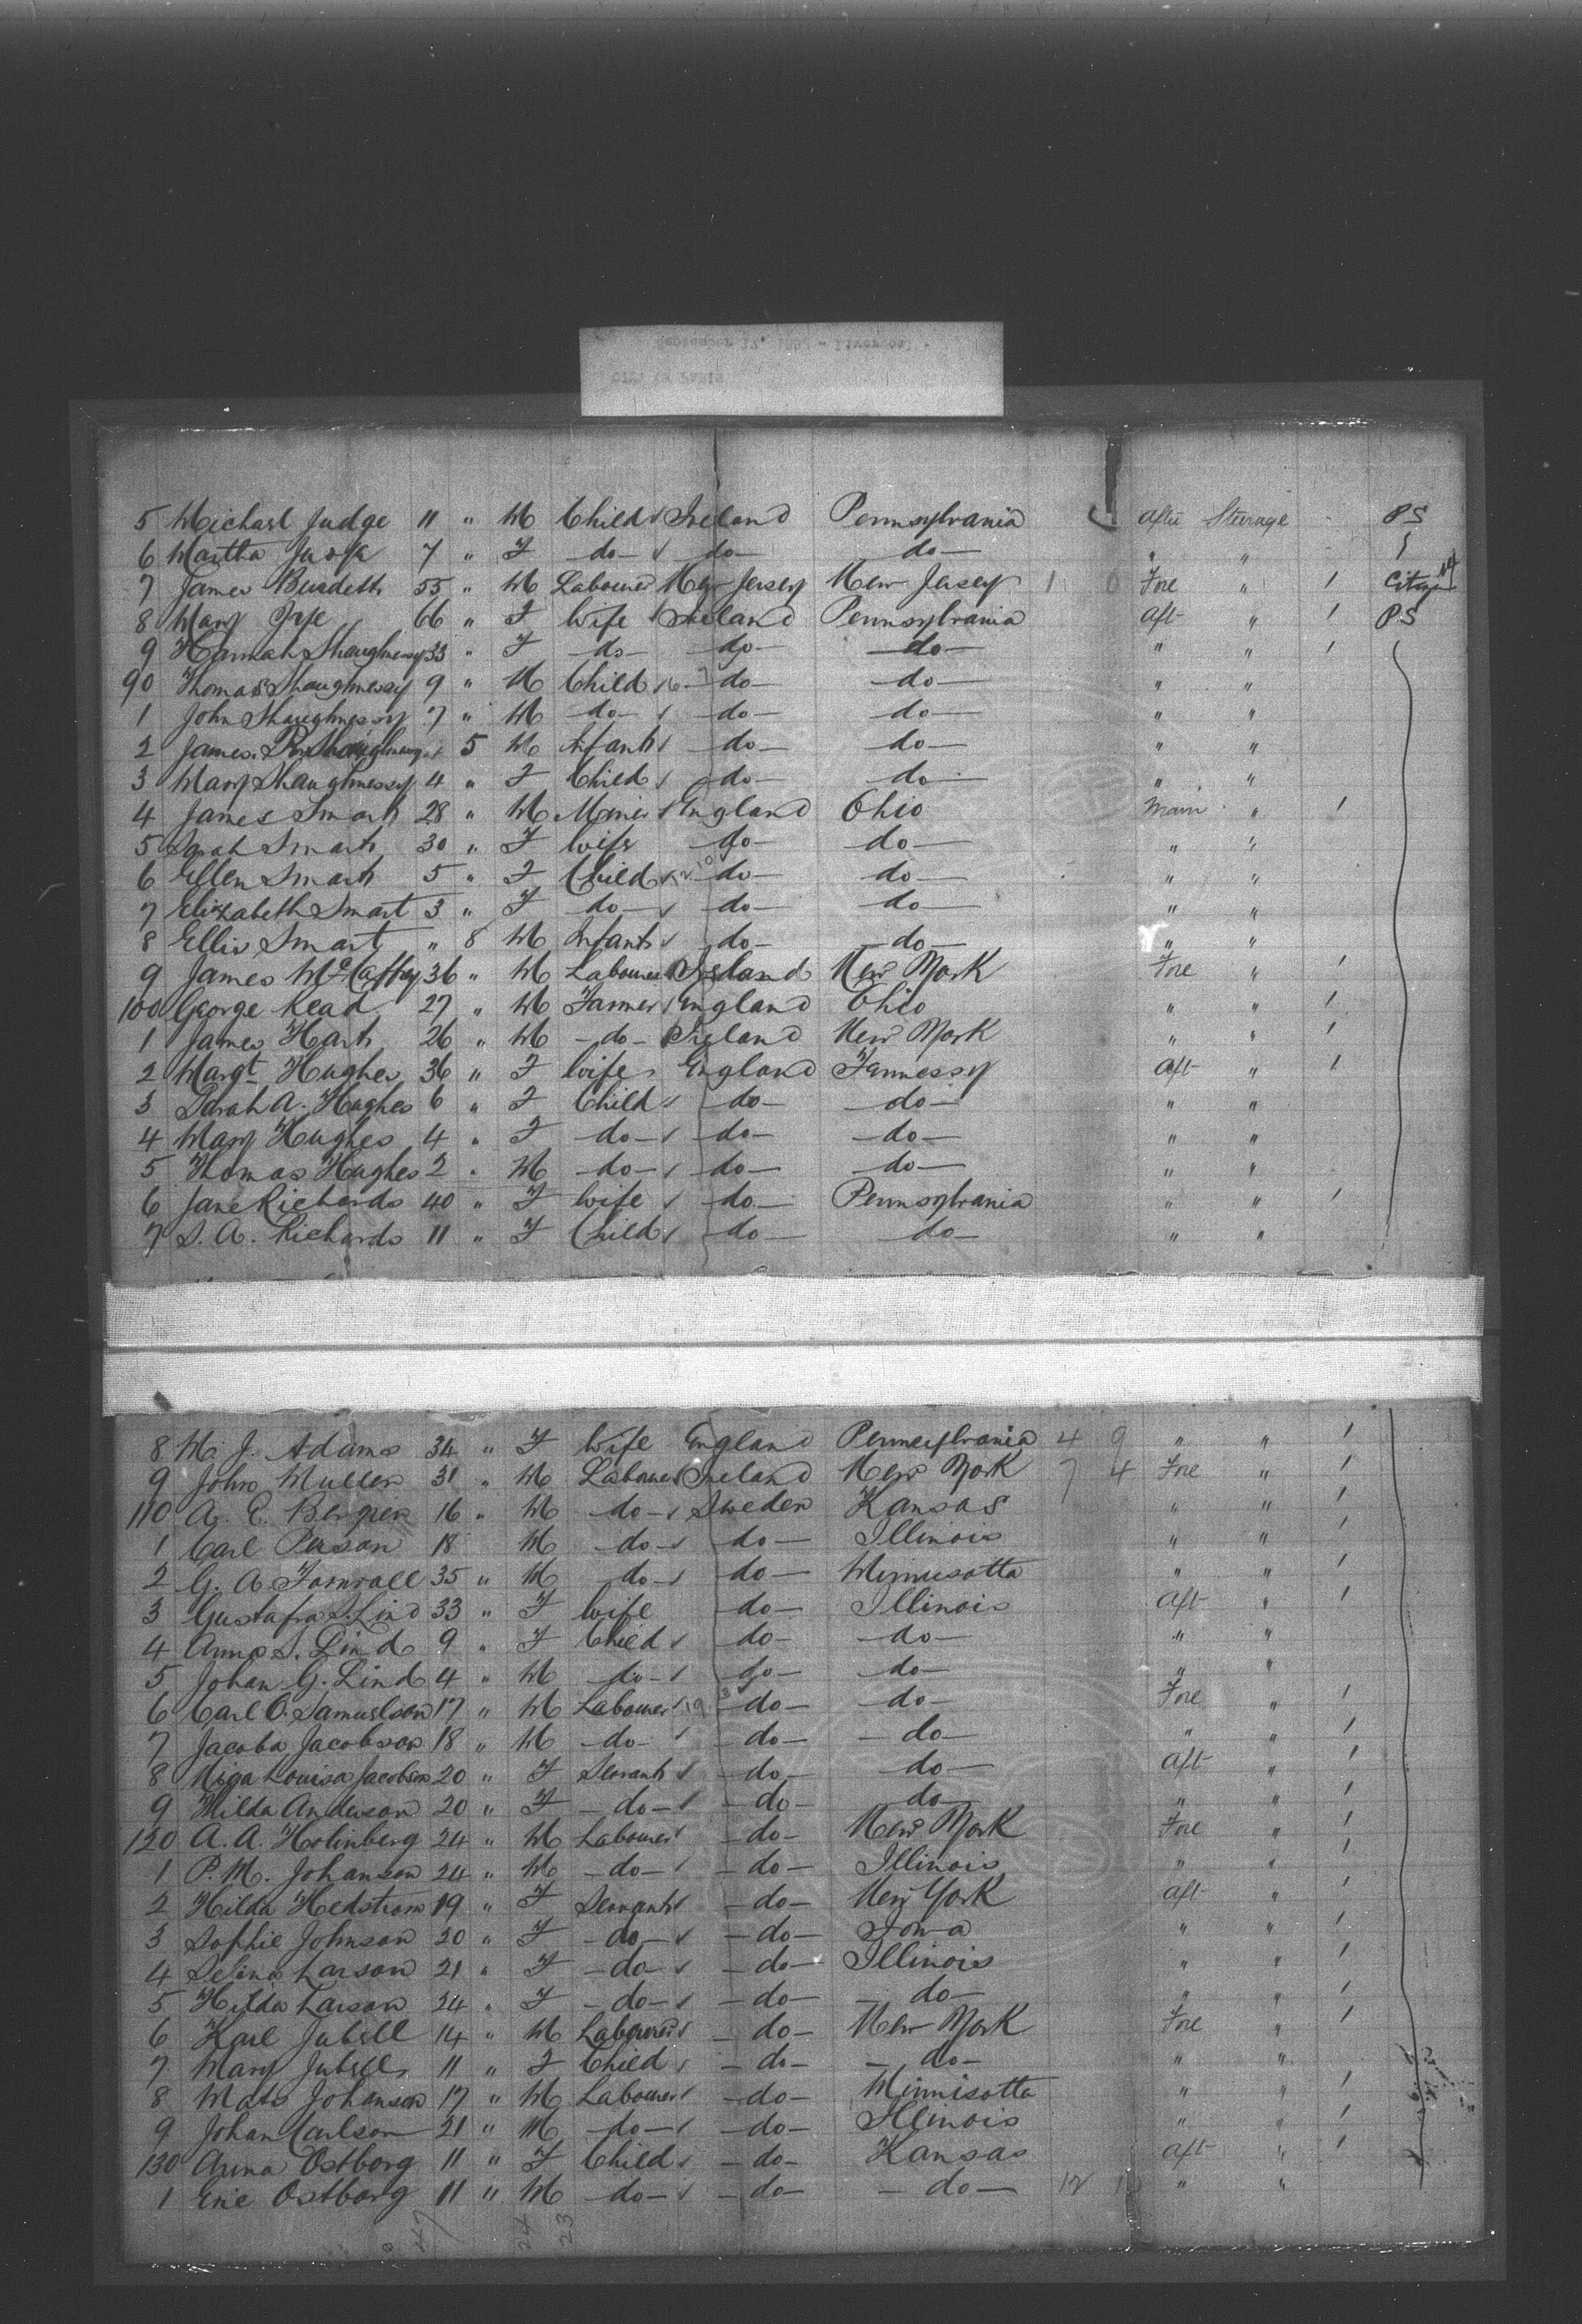 5 Michael Judge 11 " M Child Ireland Pennsylvania Steerage PS
6 Martha 7 " F do do do " "
7 James Burdett 55 " M Labourer New Jersey New Jersey 1 0 Fore " 1
8 Mary 66 " F Wife Ireland Pennsylvania Aft " 1 PS
9 Hannah Shaughnessy 33 " F do do do " " 1
90 Thomas Shaughnessy 9 " M Child do do " "
1 John Shaughnessy 7 " M do do do " "
2 James 5 M Infant do do " "
3 Mary Shaughnessy 4 " F Child do do " "
4 James Smart 28 " M Miner England Ohio Main " 1
5 Sarah Smart 30 " F Wife do do " "
6 Ellen Smart 5 " F Child do do " "
7 Elizabeth Smart 3 " F do do do " "
8 Ellis Smart " 8 M Infant do do " "
9 James McCaffrey 36 " M Labourer Ireland New York Fore " 1
100 George Read 27 " M Farmer England Ohio " " 1
1 James Hart 26 " M do Ireland New York " " 1
2 Margt Hughes 36 " F Wife England Tennessy Aft " 1
3 Sarah A. Hughes 6 " F Child do do " "
4 Mary Hughes 4 " F do do do " "
5 Thomas Hughes 2 " M do do do " "
6 Jane Richards 40 " F Wife do Pennsylvania " " 1
7 S. A. Richards 11 " F Child do do " "
8 M. J. Adams 34 " F Wife England Pennsylvania 4 9 " " 1
9 John Mullen 31 " M Labourer Ireland New York 7 4 Fore " 1
110 A. E. Bergren 16 " M do Sweden Kansas " " 1
1 Carl Person 18 M do do Illinois " " 1
2 G. A. 35 " M do do Minnisotta " " 1
3 Gustafva S. Lind 33 " F Wife do Illinois Aft " 1
4 Anna S. Lind 9 " F Child do do " "
5 Johan G. Lind 4 " M do do do " "
6 Carl O. Samuelson 17 " M Labourer do do Fore " 1
7 Jacoba Jacobson 18 " M do do do " " 1
8 Louisa Jacobson 20 " F Servant do do Aft " 1
9 Hilda Anderson 20 " F do do do " " 1
120 A. A. Holinberg 24 " M Labourer do New York Fore " 1
1 P. M. Johanson 24 " M do do Illinois " " 1
2 Hilda Hedstrom 19 " F Servant do New York Aft " 1
3 Sophie Johnson 20 " F do do Iowa " " 1
4 Selina Larson 21 " F do do Illinois " " 1
5 Hilda Larson 24 " F do do do " " 1
6 Karl Jubell 14 " M Labourer do New York Fore " 1
7 Mary Jubell 11 " F Child do do " "
8 Mats Johanson 17 " M Labourer do Minnisotta " " 1
9 Johan Carlson 21 " M do do Illinois " " 1
130 Anna Ostborg 11 " F Child do Kansas Aft " 1
1 Eric Ostborg 11 " M do do do 12 " "
47 24 23